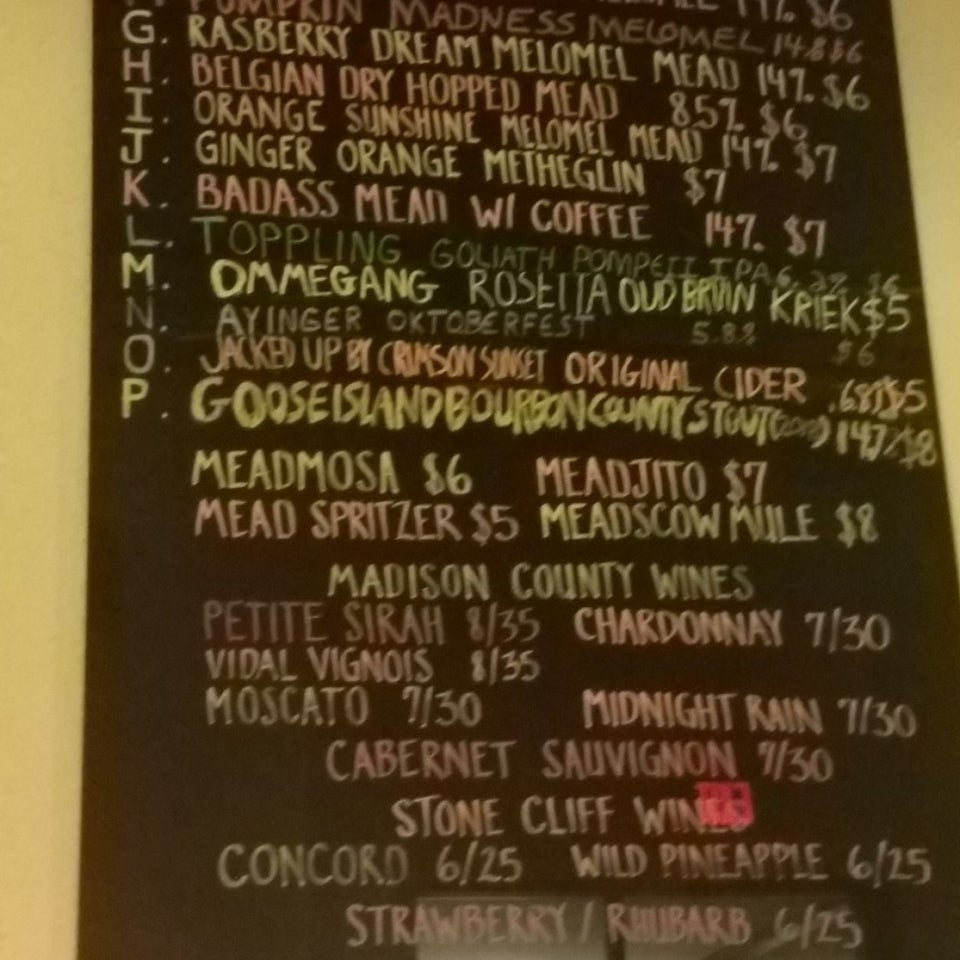 MELOMEL 14% $6
PUMPKIN MADNESS MELOMEL 14.8 $6
G. RASBERRY DREAM MELOMEL MEAD 14% $6
H. BELGIAN DRY HOPPED MEAD 8.5% $6
I. ORANGE SUNSHINE MELOMEL MEAD 14% $7
J. GINGER ORANGE METHEGLIN $7
K. BADASS MEAD W/ COFFEE 14% $7
L. TOPPLING GOLIATH POMPEII IPA 6.2% $6
M. OMMEGANG ROSETTA OUD BRUIN KRIEK $5
N. AYINGER OKTOBERFEST 5.8% $6
O. JACKED UP BY CRIMSON SUNSET ORIGINAL CIDER $5
P. GOOSE ISLAND BOURBON COUNTY STOUT 14.7% $8
MEADMOSA $6 MEADJITO $7
MEAD SPRITZER $5 MEADSCOW MULE $8
MADISON COUNTY WINES
PETITE SIRAH 8/35 CHARDONNAY 7/30
VIDAL VIGNOIS 8/35
MOSCATO 7/30 MIDNIGHT RAIN 7/30
CABERNET SAUVIGNON 7/30
STONE CLIFF WINES
CONCORD 6/25 WILD PINEAPPLE 6/25
STRAWBERRY / RHUBARB 6/25